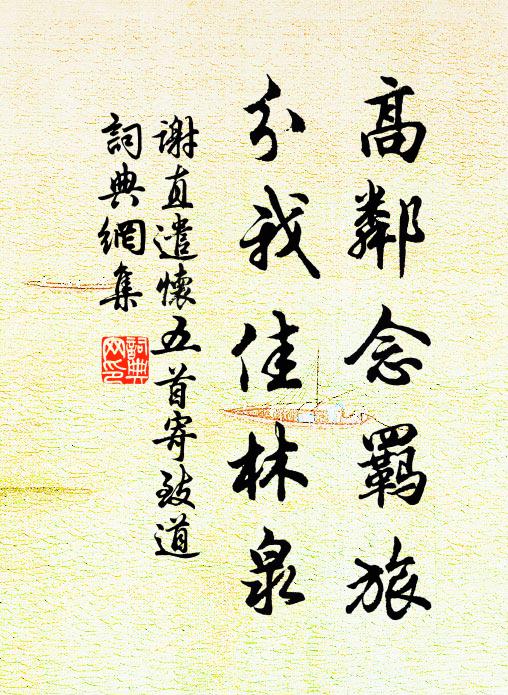 高鄰念羈旅
分我佳林泉
謝直遣懷五首寄致道
詞典網集
詞典
网印